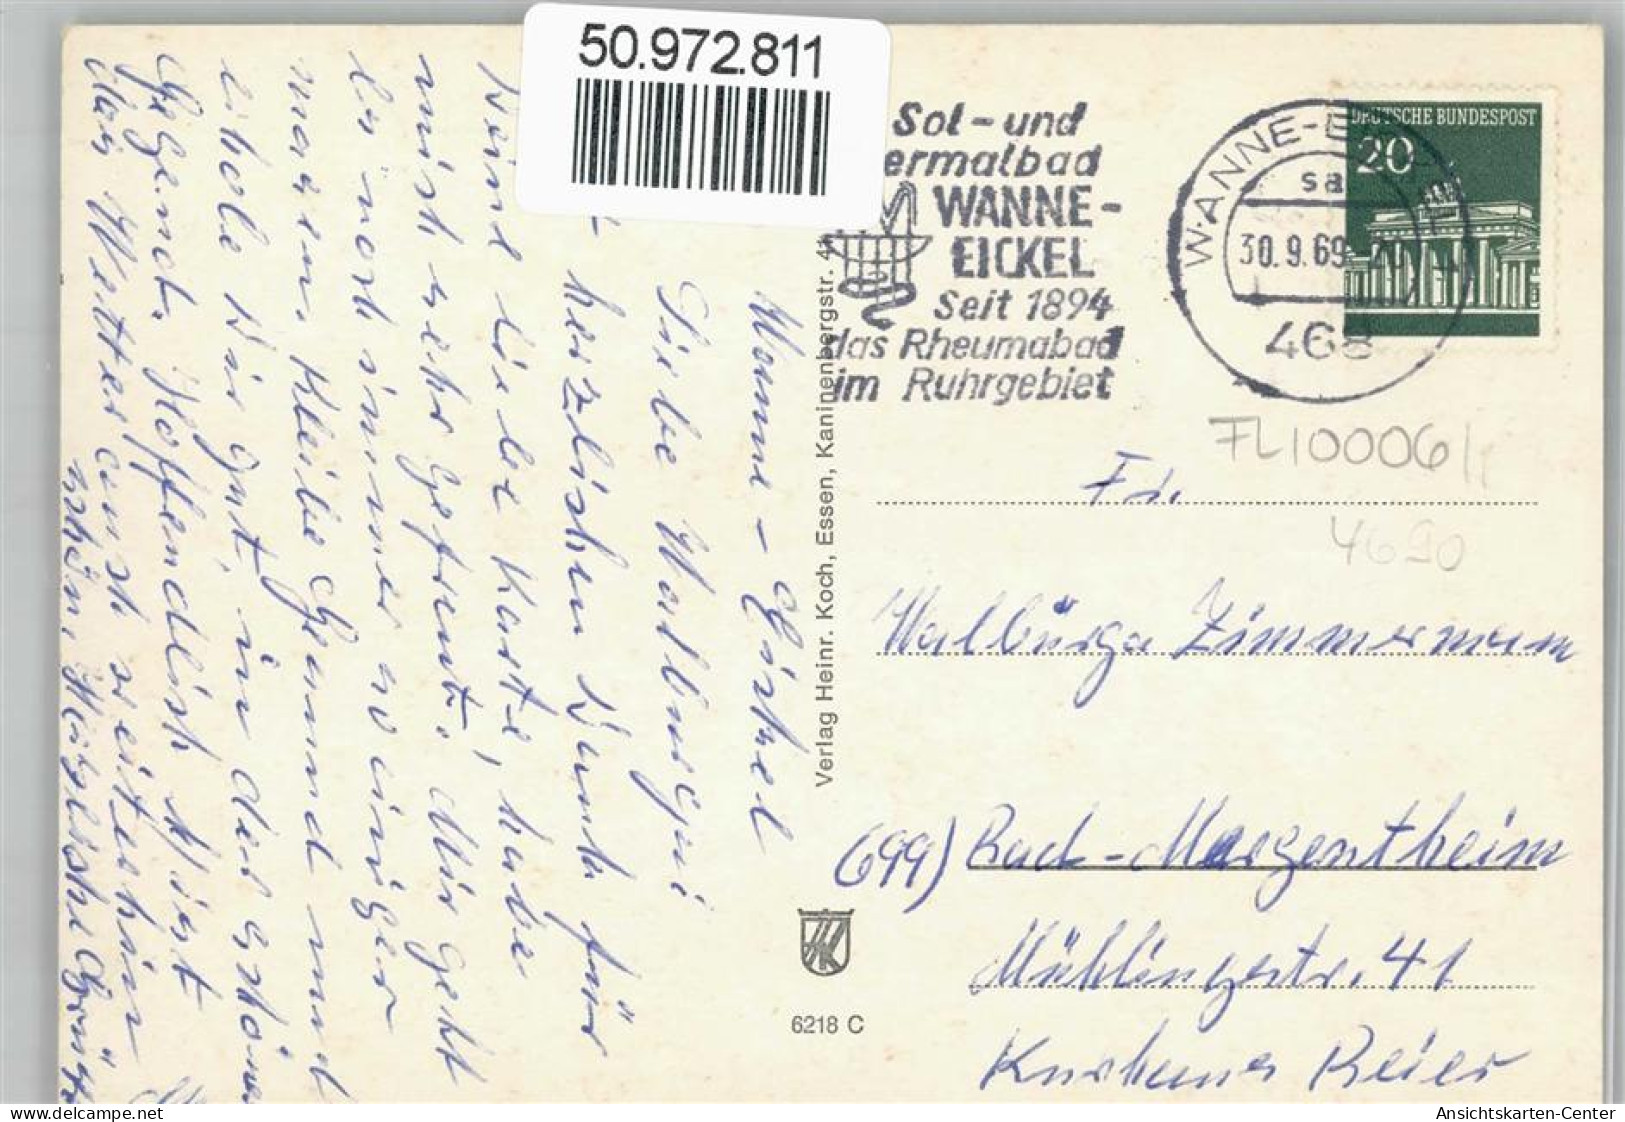 50.972.811
Sol- und
ermalbad
WANNE-
EICKEL
Seit 1894
das Rheumabad
im Ruhrgebiet
W.ANNE-E
sa
30.9.69
468
DEUTSCHE BUNDESPOST
20
FL10006
4690
Fr.
Walburga Zimmermann
(699) Bad-Mergentheim
Mühlingstr. 41
Kurhaus Reier
Verlag Heinr. Koch, Essen, Kaninenbergstr. 41
6218 C
Wanne-Eickel
Liebe Walburga!
herzlichen Dank für
Deine liebe Karte, habe
mich sehr gefreut. Mir geht
es noch immer so einiger
massen. Bleibe Gesund und
erhole Dir gut, in der schönen
Gegend. Hoffendlich bleibt
das Wetter auch weiterhin
schön. Herzliche Grüße
delcampe.net
Ansichtskarten-Center